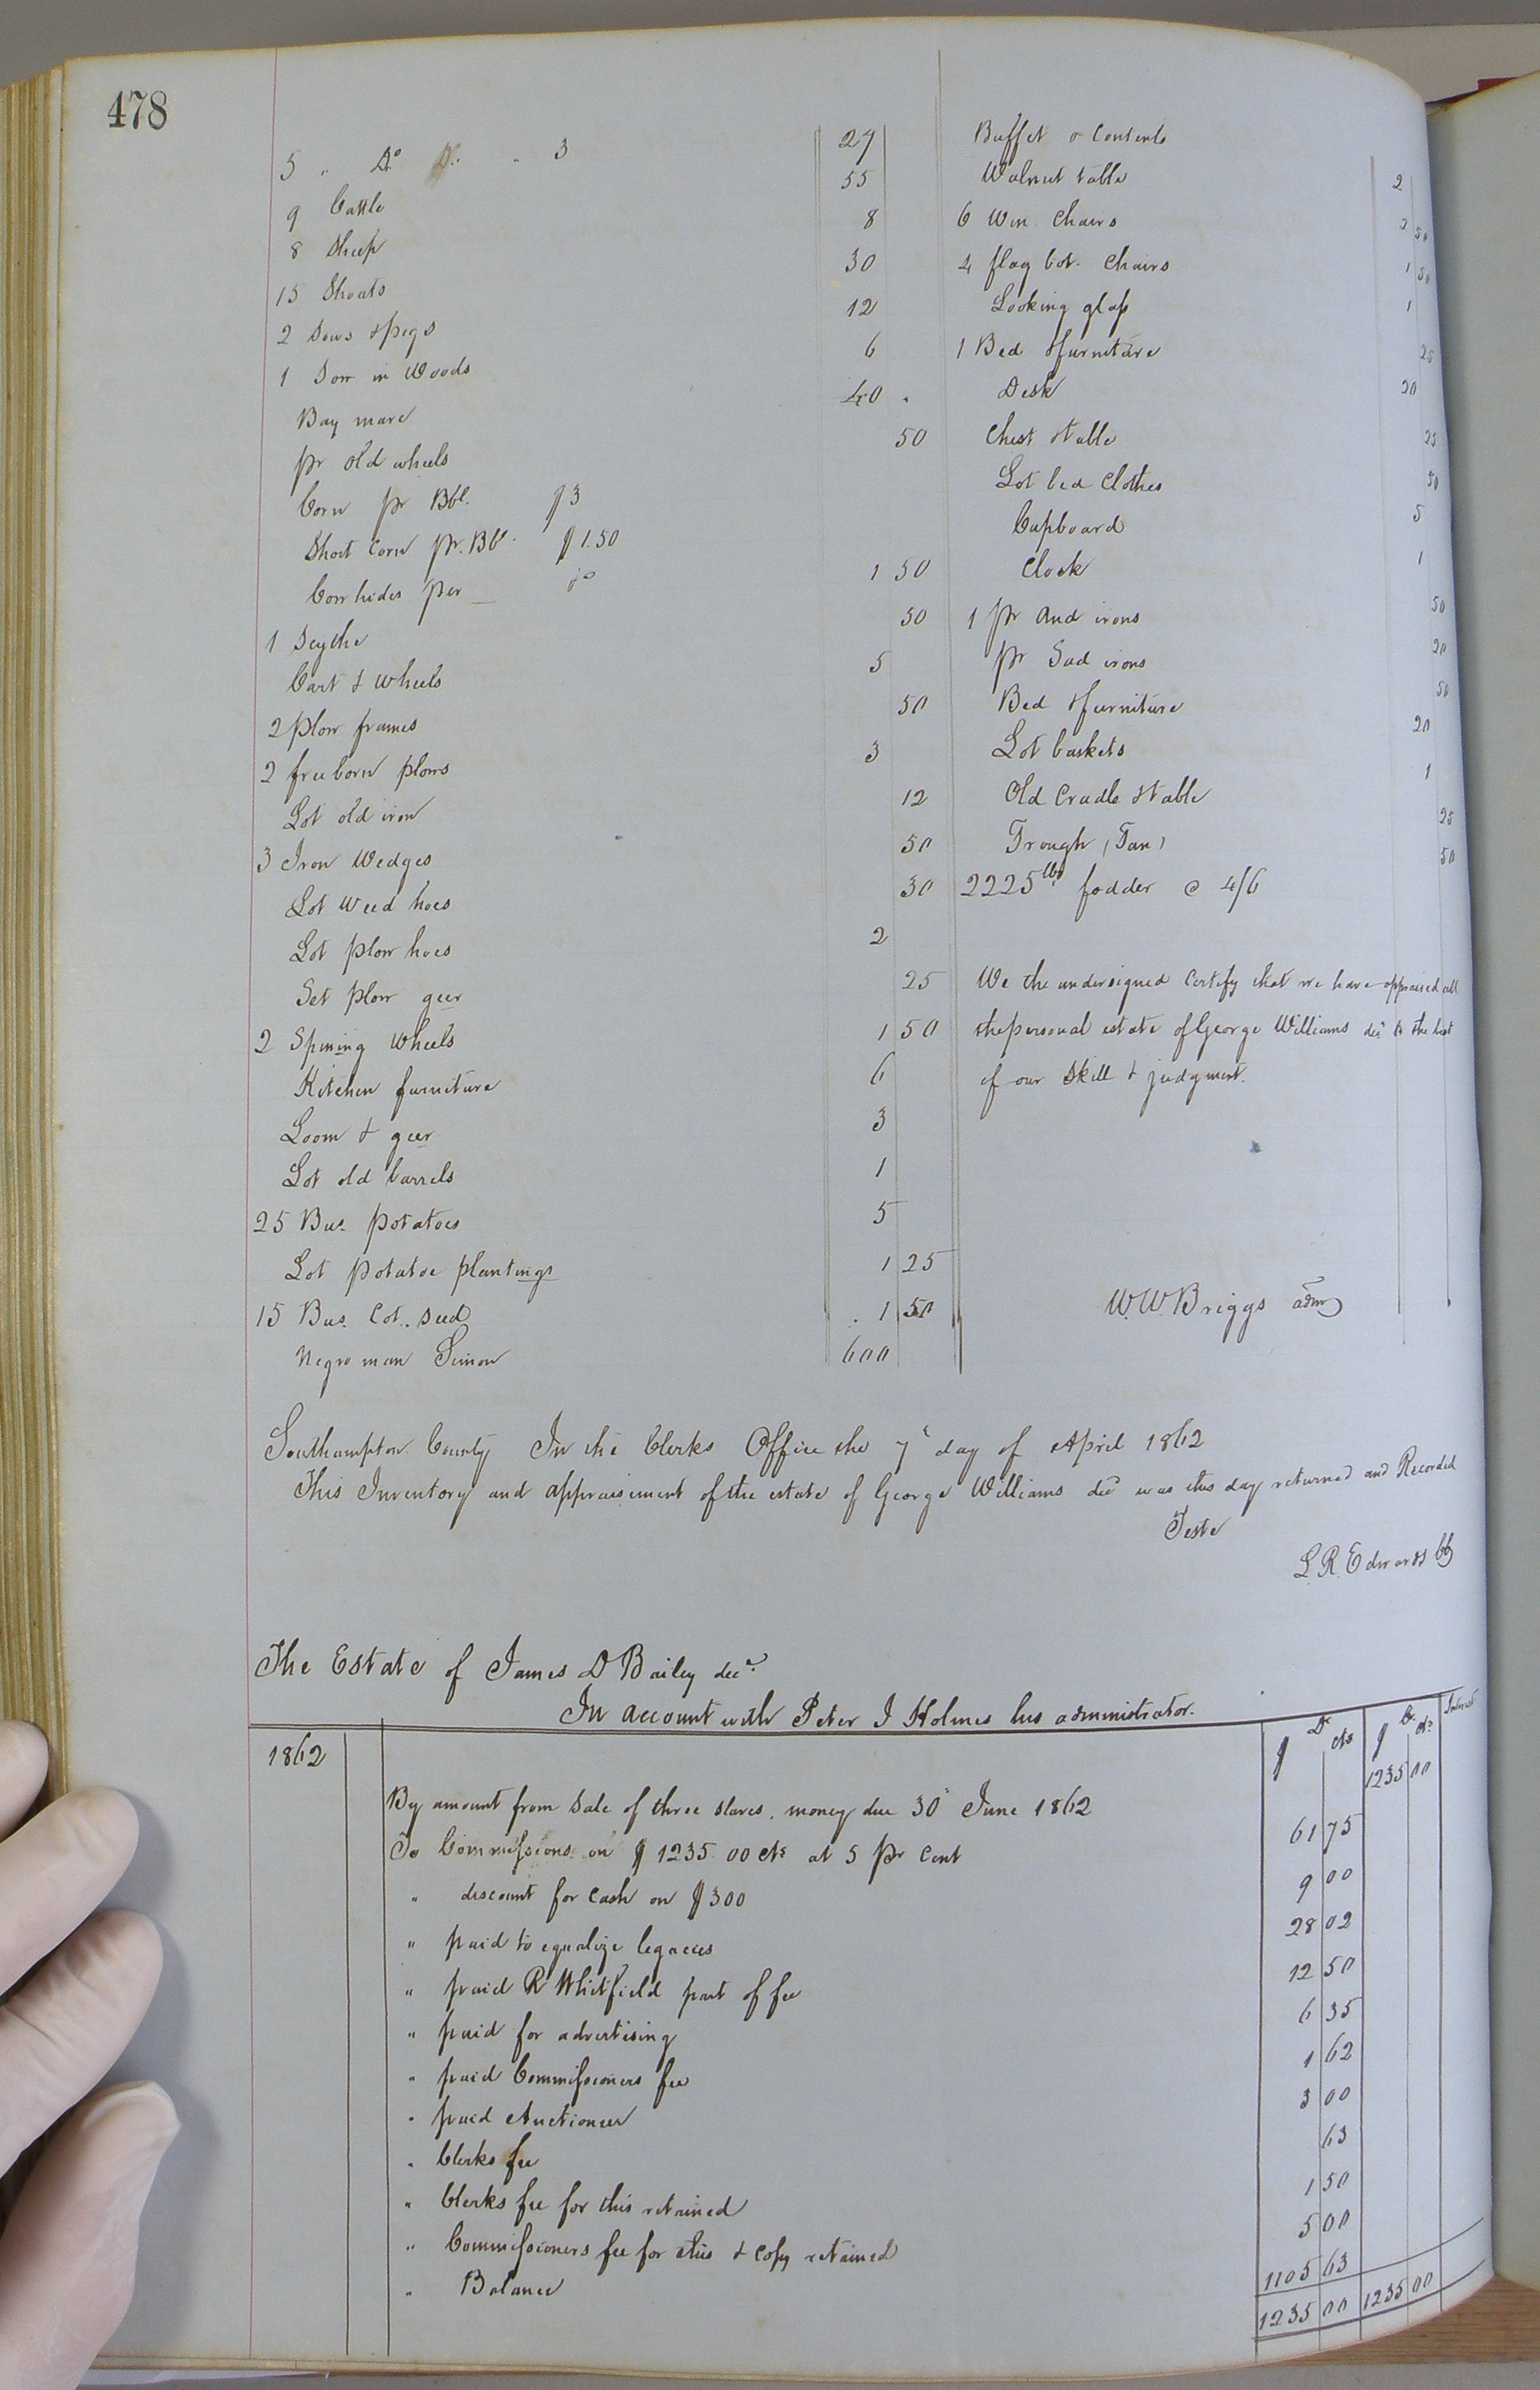 478
5 " Do Do " 3 27
9 Cattle 55
8 Sheep 8
15 Shoats 30
2 Sows & pigs 12
1 Sow in Woods 6
Bay mare 40
pr old wheels 50
Corn pr Bbl. $3
Short Corn pr. Bbl. $1.50
Cow hides per do 1 50
1 Scythe 50
Cart & wheels 5
2 plow frames 50
2 freeborn plows 3
Lot old iron 12
3 Iron Wedges 50
Lot weed hoes 30
Lot plow hoes 2
Set plow geer 25
2 Spining Wheels 1 50
Kitchen furniture 6
Loom & geer 3
Lot old barrels 1
25 Bus. potatoes 5
Lot potatoe plantings 1 25
15 Bus. Cot. seed 1 50
Negro man Simon 600
Buffet & Contents 2
Walnut table 2 50
6 Win. Chairs 1 50
4 flag bot. Chairs 1
Looking glass 25
1 Bed & furniture 20
Desk 25
Chest & table 50
Lot bed Clothes 5
Cupboard 1
Clock 50
1 pr And irons 20
pr Sad irons 50
Bed & furniture 20
Lot baskets 1
Old Cradle & table 25
Trough (Tan) 50
2225 lbs fodder @ 4/6
We the undersigned Certify that we have appraised all
the personal estate of George Williams decd to the best
of our Skill & judgment.
W. W. Briggs admr
Southampton County In the Clerks Office the 7th day of April 1862
This Inventory and appraisement of the estate of George Williams decd was this day returned and Recorded
Teste
L. R. Edwards CC
The Estate of James D Bailey decd.
In account with Peter J Holmes his administrator.
$ Dr cts $ Cr cts Interest
1862
By amount from Sale of three slaves. money due 30th June 1862 1235 00
To Commissions on $1235.00 cts at 5 pr Cent 61 75
" discount for Cash on $300 9 00
" paid to equalize legacies 28 02
" paid R Whitfield part of fee 12 50
" paid for advertising 6 35
" paid Commissioners fee 1 62
" paid Auctioneer 3 00
" Clerks fee 63
" Clerks fee for this retained 1 50
" Commissioners fee for this & Copy retained 5 00
" Balance 1105 63
1235 00 1235 00